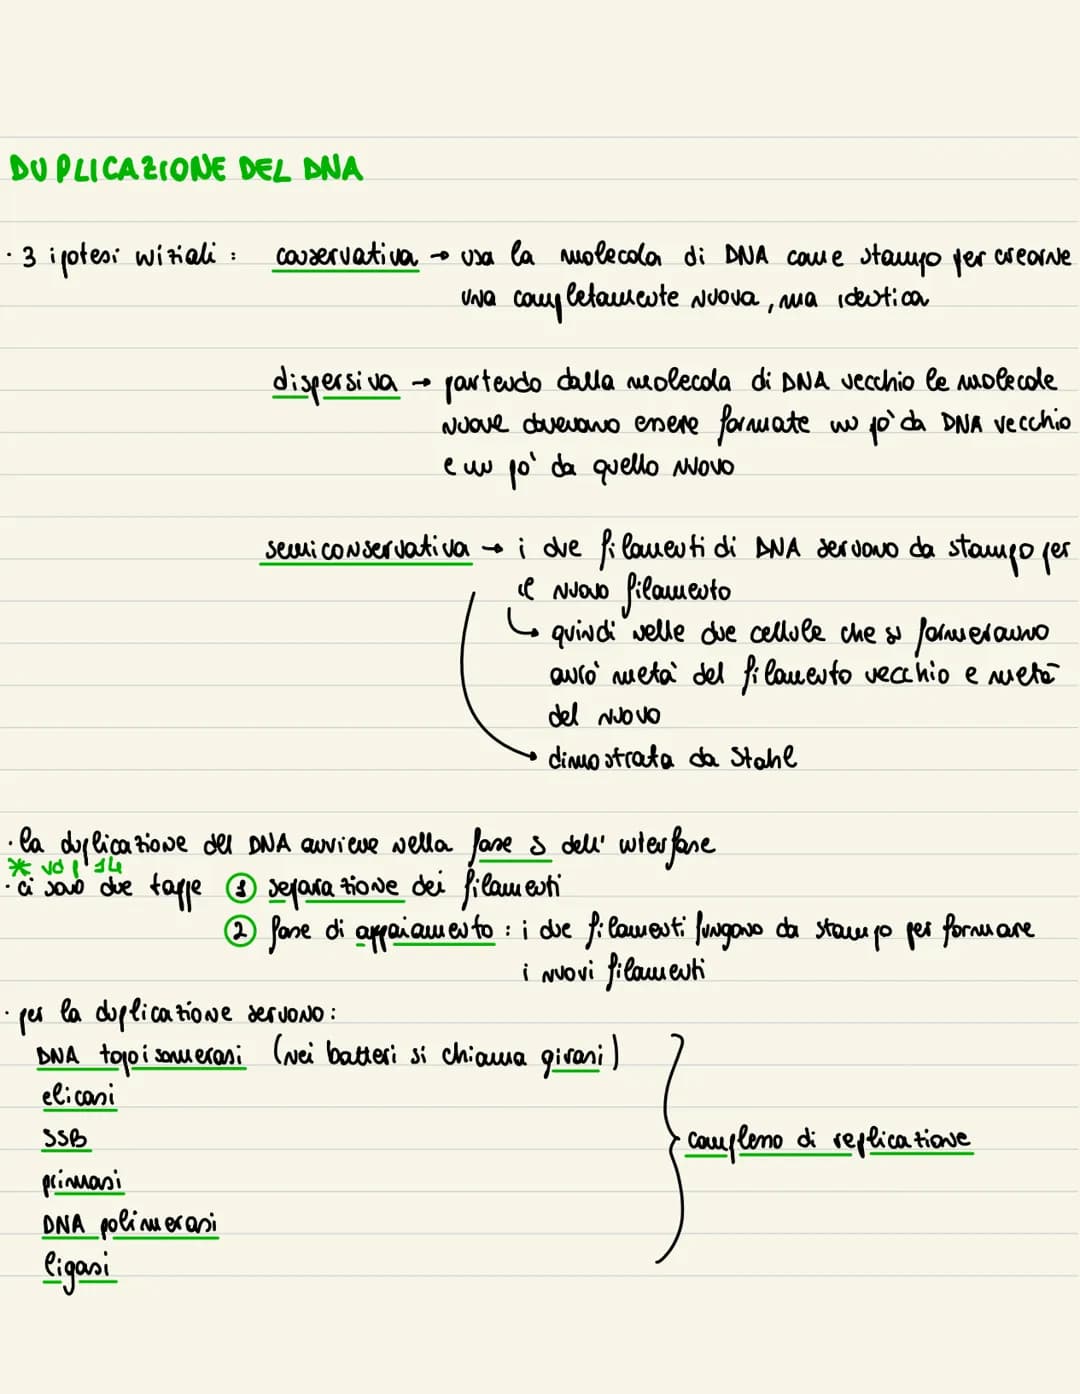 DUPLICAZIONE DEL DNA
· 3 ipotesi iniziali : conservativa → usa la molecola di DNA come stampo per crearne
una completamente nuova, ma identica
dispersiva → partendo dalla molecola di DNA vecchio le molecole
nuove dovevano essere formate un po' da DNA vecchio
e un po' da quello nuovo
semiconservativa → i due filamenti di DNA servono da stampo per
il nuovo filamento
↳ quindi nelle due cellule che si formeranno
avrò metà del filamento vecchio e metà
del nuovo
→ dimostrata da Stahl
· la duplicazione del DNA avviene nella fase S dell' interfase
* vd p 14
· ci sono due tappe ① separazione dei filamenti
② fase di appaiamento : i due filamenti fungono da stampo per formare
i nuovi filamenti
· per la duplicazione servono :
DNA topoisomerasi (nei batteri si chiama girasi)
elicasi
SSB
complesso di replicazione
primasi
DNA polimerasi
ligasi